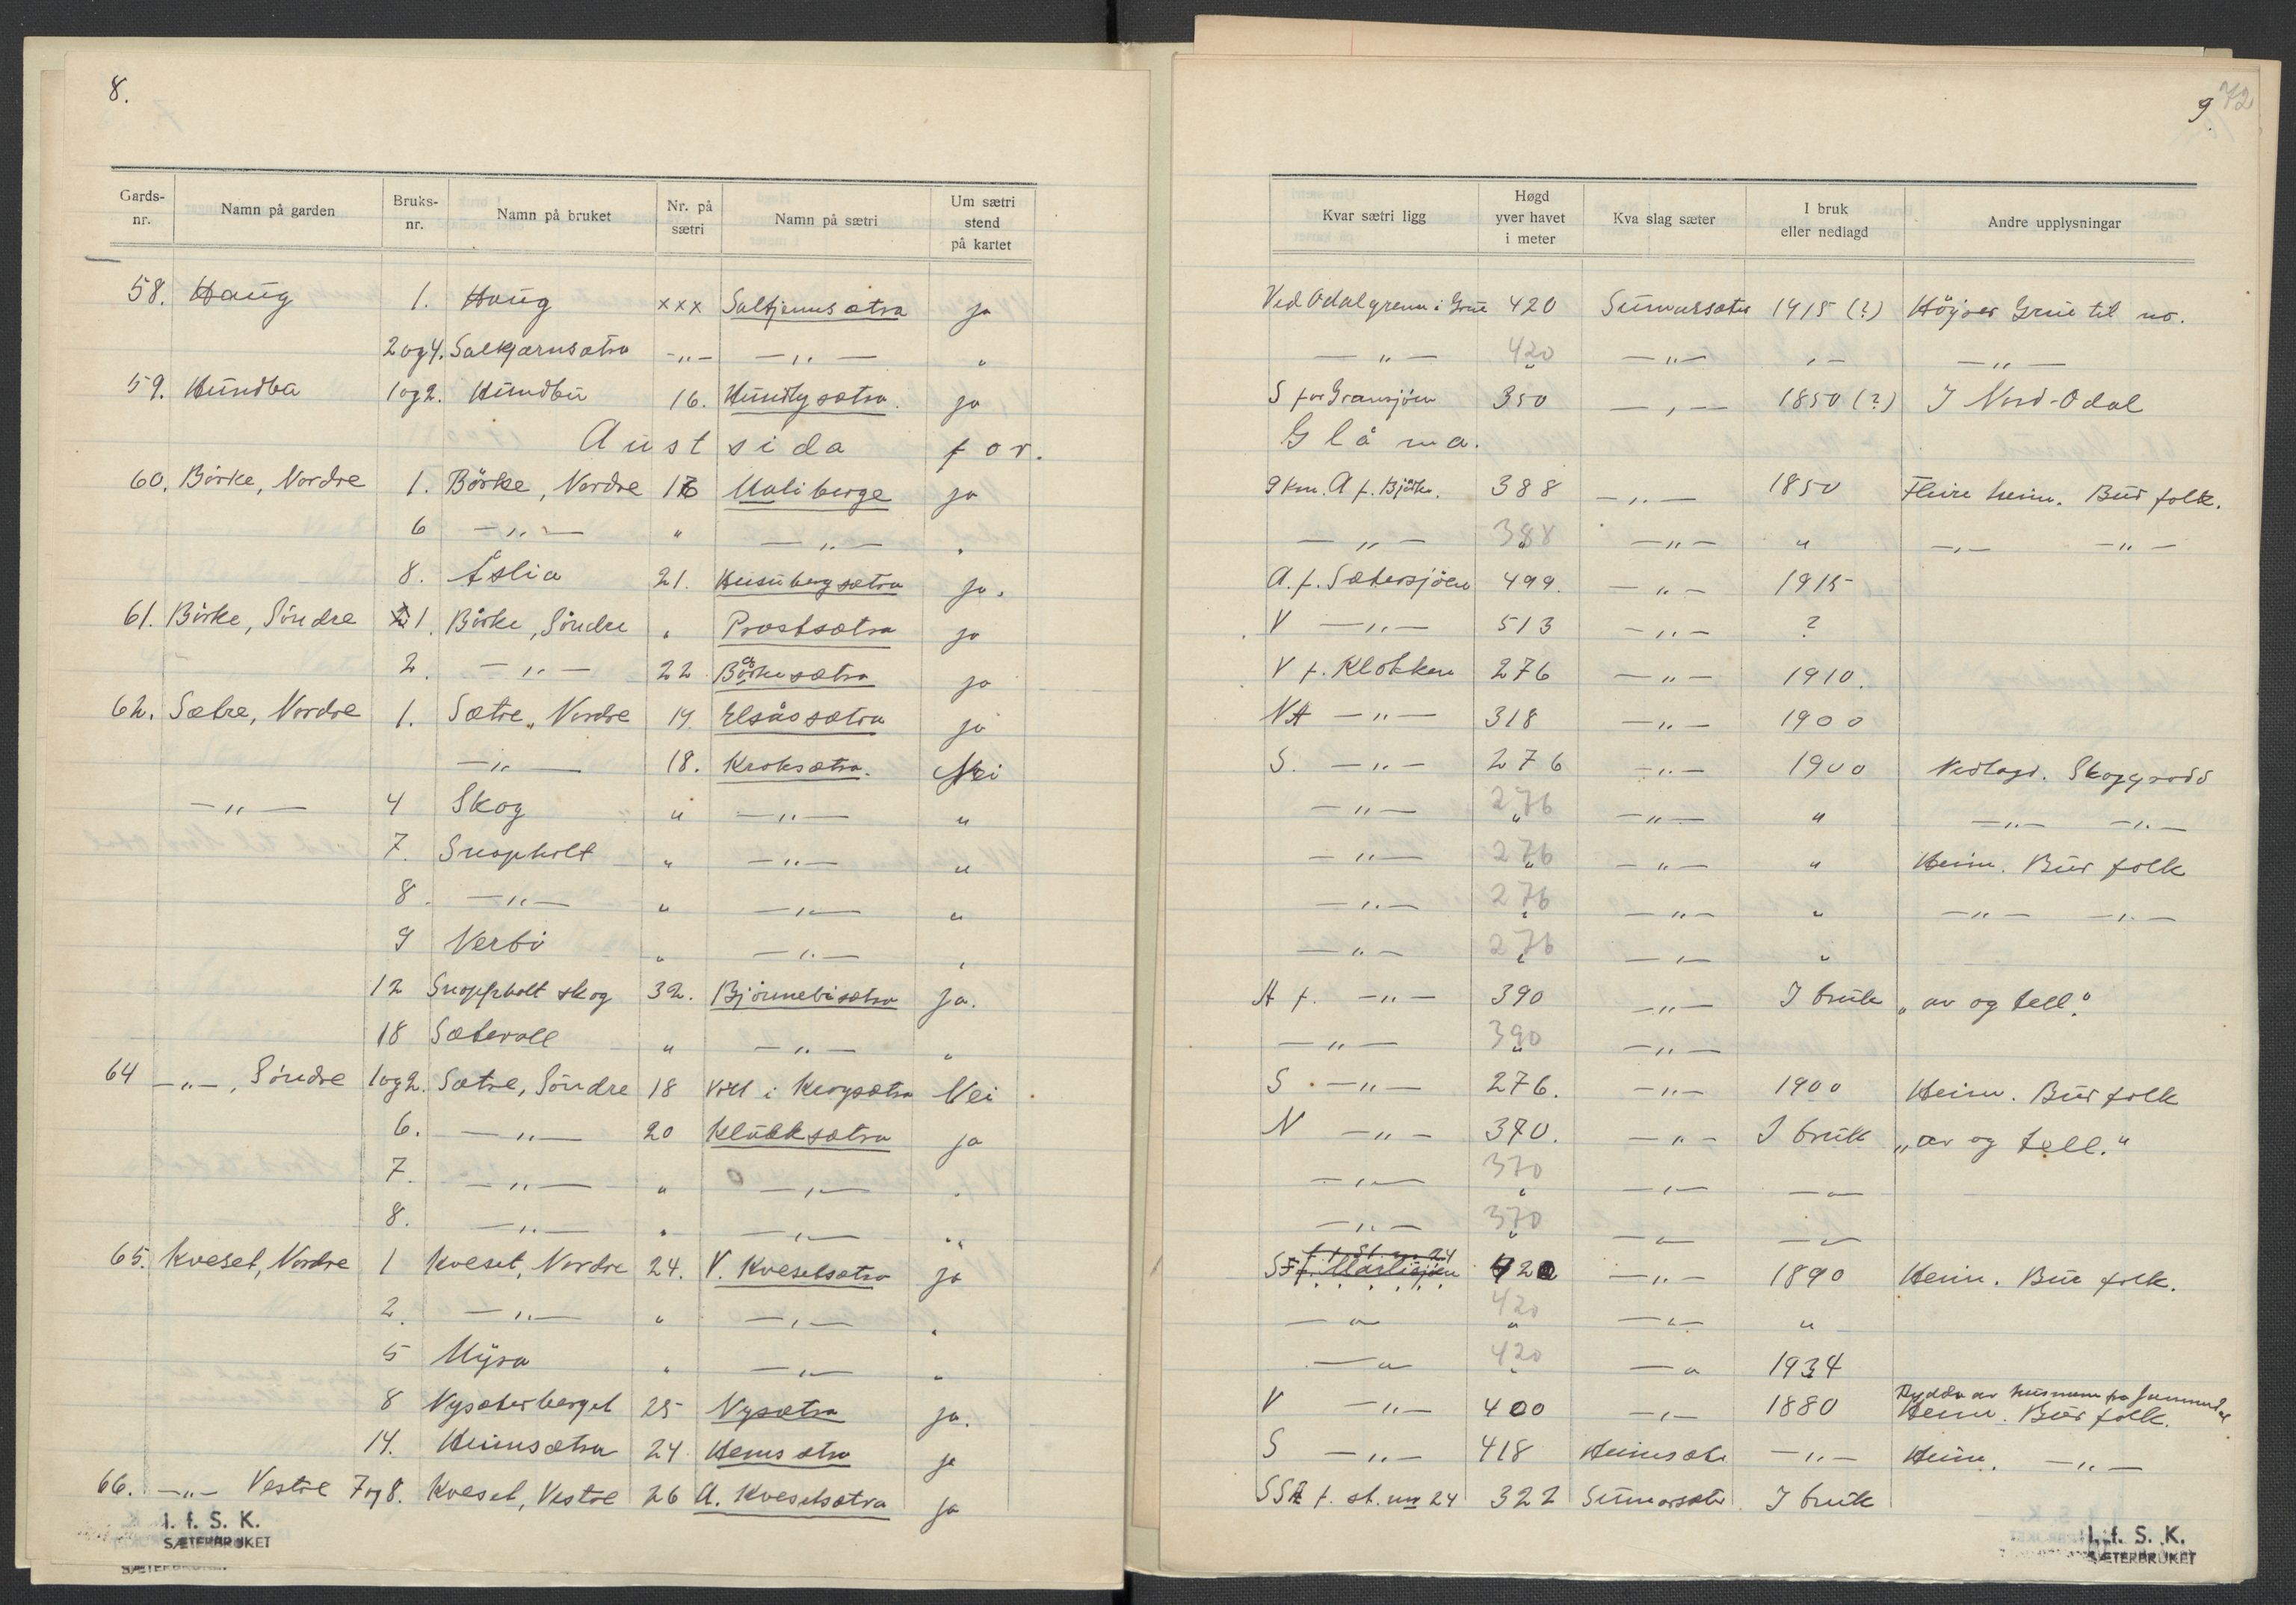 8.
Gards-nr. Namn på garden Bruks-nr. Namn på bruket Nr. på sætri Namn på sætri Um sætri stend på kartet
58. Haug 1. Haug xxx Saltjernsætra ja
2og4. Saltjærnsætra -„- -„- „
59. Hundbu 1og2. Hundbu 16. Hundbysætra. ja
Austsida for.
60. Börke, Nordre 1. Börke, Nordre 17 Maliberge ja
6 -„- „ -„- „
8. Åslia 21. Husubergsætra ja.
61. Börke, Söndre 1. Börke, Söndre „ Prostsætra ja
2. -„- 22 Börkesætra ja
62. Sætre, Nordre 1. Sætre, Nordre 19 Elsåssætra ja
-„- 18. Kroksætra. Nei
-„- 4 Skog „ -„- „
7. Snopholt „ -„- „
8. -„- „ -„- „
9 Nerbi „ -„- „
12 Snoppholt skog 32. Björnebisætra Ja.
18 Sætervoll „ -„- „
64 -„-, Söndre 1og2. Sætre, Söndre 18 Voll i Krogsætra Nei
6. -„- 20 Klukksætra ja
7. -„- „ -„- „
8. -„- „ -„- „
65. Kveset, Nordre 1 Kveset, Nordre 24. V. Kvesetsætra ja
2. -„- „ -„- „
5 Myra „ -„- „
8 Nysæterberget 25 Nysætra ja.
14. Heimsætra 24 Hemsætra ja
66. -„- Vestre 7og8. Kveset, Vestre 26 A. Kvesetsætra ja
I. f. S. K.
SÆTERBRUKET
9. 72
Kvar sætri ligg Høgd yver havet i meter Kva slag sæter I bruk eller nedlagd Andre upplysningar
Ved Odalgrensa i Grue 420 Sumarsæter 1915 (?) Höyrer Grue til no.
-„- 420 -„- „- -„-
S for Gransjöen 350 -„- 1850 (?) I Nord-Odal
Glåma.
9 km. A f. Björke. 388 -„- 1850 Fleire heim. Bur folk.
-„- 388 -„- „ -„- -„-
A. f. Sætersjöen 499. -„- 1915
V -„- 513 -„- ?
V f. Klokkern 276 -„- 1910.
NA -„- 318 -„- 1900
S. -„- 276 -„- 1900 Nedlagd. Skoggrodd
-„- 276 -„- „ -„- -„-
-„- 276 -„- „ Heim. Bur folk
-„- 276 -„- „ -„- -„-
-„- 276 -„- „
A f. -„- 390 -„- I bruk „av og tell."
-„- 390 -„-
S -„- 276. -„- 1900 Heim. Bur folk
N -„- 370. -„- I bruk „av og tell."
-„- 370 -„- -„-
-„- 370 -„- -„-
420 -„- 1890 Heim. Bur folk.
-„- 420 -„- „
-„- 420 -„ 1934
V -„- 400 -„- 1880 Rydda av husmann fra
Heim. Bur folk.
S -„- 418 Heimsæter -„- Heim. -„-
SSA f. st. nr 24 322 Sumarsæter. I bruk
I. f. S. K.
SÆTERBRUKET